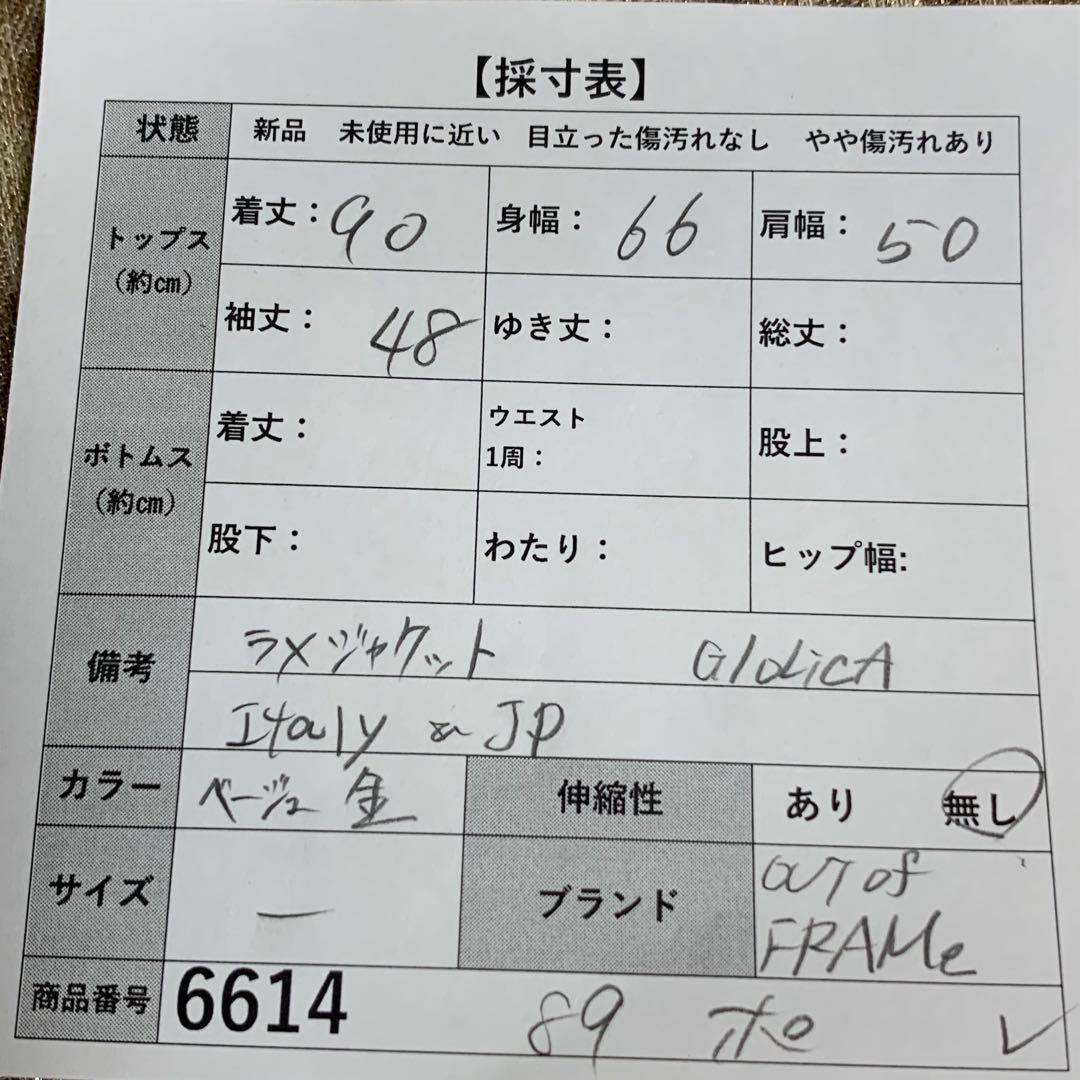 【採寸表】
状態 新品 未使用に近い 目立った傷汚れなし やや傷汚れあり
トップス（約㎝） 着丈：90 身幅：66 肩幅：50
袖丈：48 ゆき丈： 総丈：
ボトムス（約㎝） 着丈： ウエスト1周： 股上：
股下： わたり： ヒップ幅:
備考 ラメジャケット
Italy JP
カラー ベージュ 金 伸縮性 あり 無し
サイズ ー ブランド OUT of
FRAMe
商品番号 6614 89 ホロ ✓